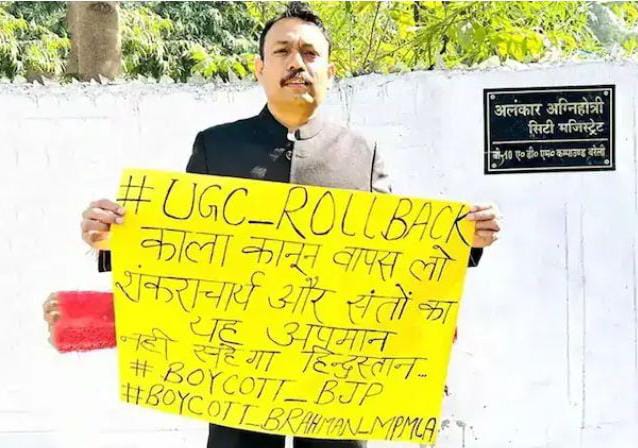 #UGC_ROLLBACK
काला कानून वापस लो
शंकराचार्य और संतों का
यह अपमान
नहीं सहेगा हिन्दुस्तान...
# BOYCOTT_BJP
#BOYCOTT_BRAHMAN_MPMLA
अलंकार अग्निहोत्री
सिटी मजिस्ट्रेट
बी-10 ए० डी० एम० कम्पाउण्ड बरेली